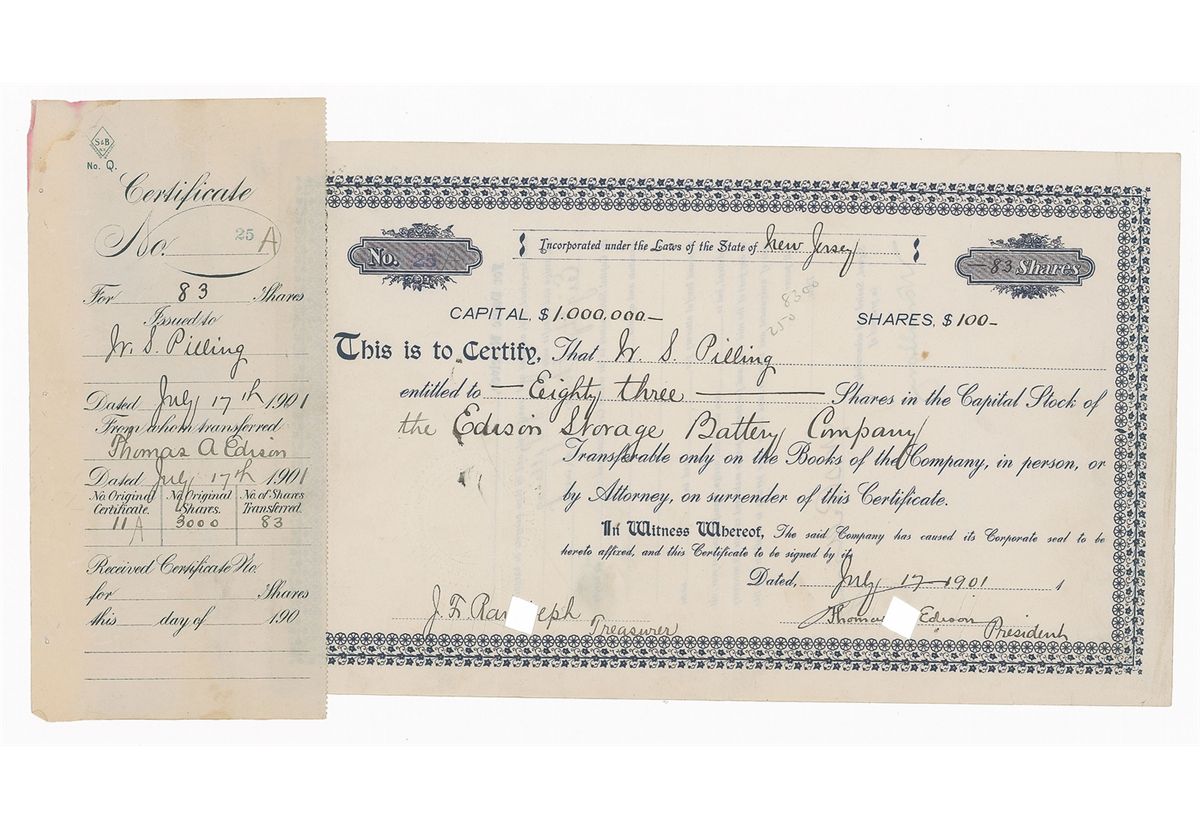 S&B
N.Y.
No. Q.
Certificate
No. 25 A
For 83 Shares
Issued to
W. S. Pilling
Dated July 17th 1901
From whom transferred
Thomas A Edison
Dated July 17th 1901
No. Original Certificate. No. Original Shares. No. of Shares Transferred.
11 A 3000 83
Received Certificate No.
for Shares
this day of 190
Incorporated under the Laws of the State of New Jersey
No. 25
83 Shares
8300
250
CAPITAL, $ 1.000.000–
SHARES, $ 100–
This is to Certify, That W. S. Pilling
entitled to — Eighty three — Shares in the Capital Stock of
the Edison Storage Battery Company
Transferable only on the Books of the Company, in person, or
by Attorney, on surrender of this Certificate.
In Witness Whereof, The said Company has caused its Corporate seal to be
hereto affixed, and this Certificate to be signed by its
Dated, July 17–1901 1
J. F. Ran eph Treasurer
Thomas Edison President